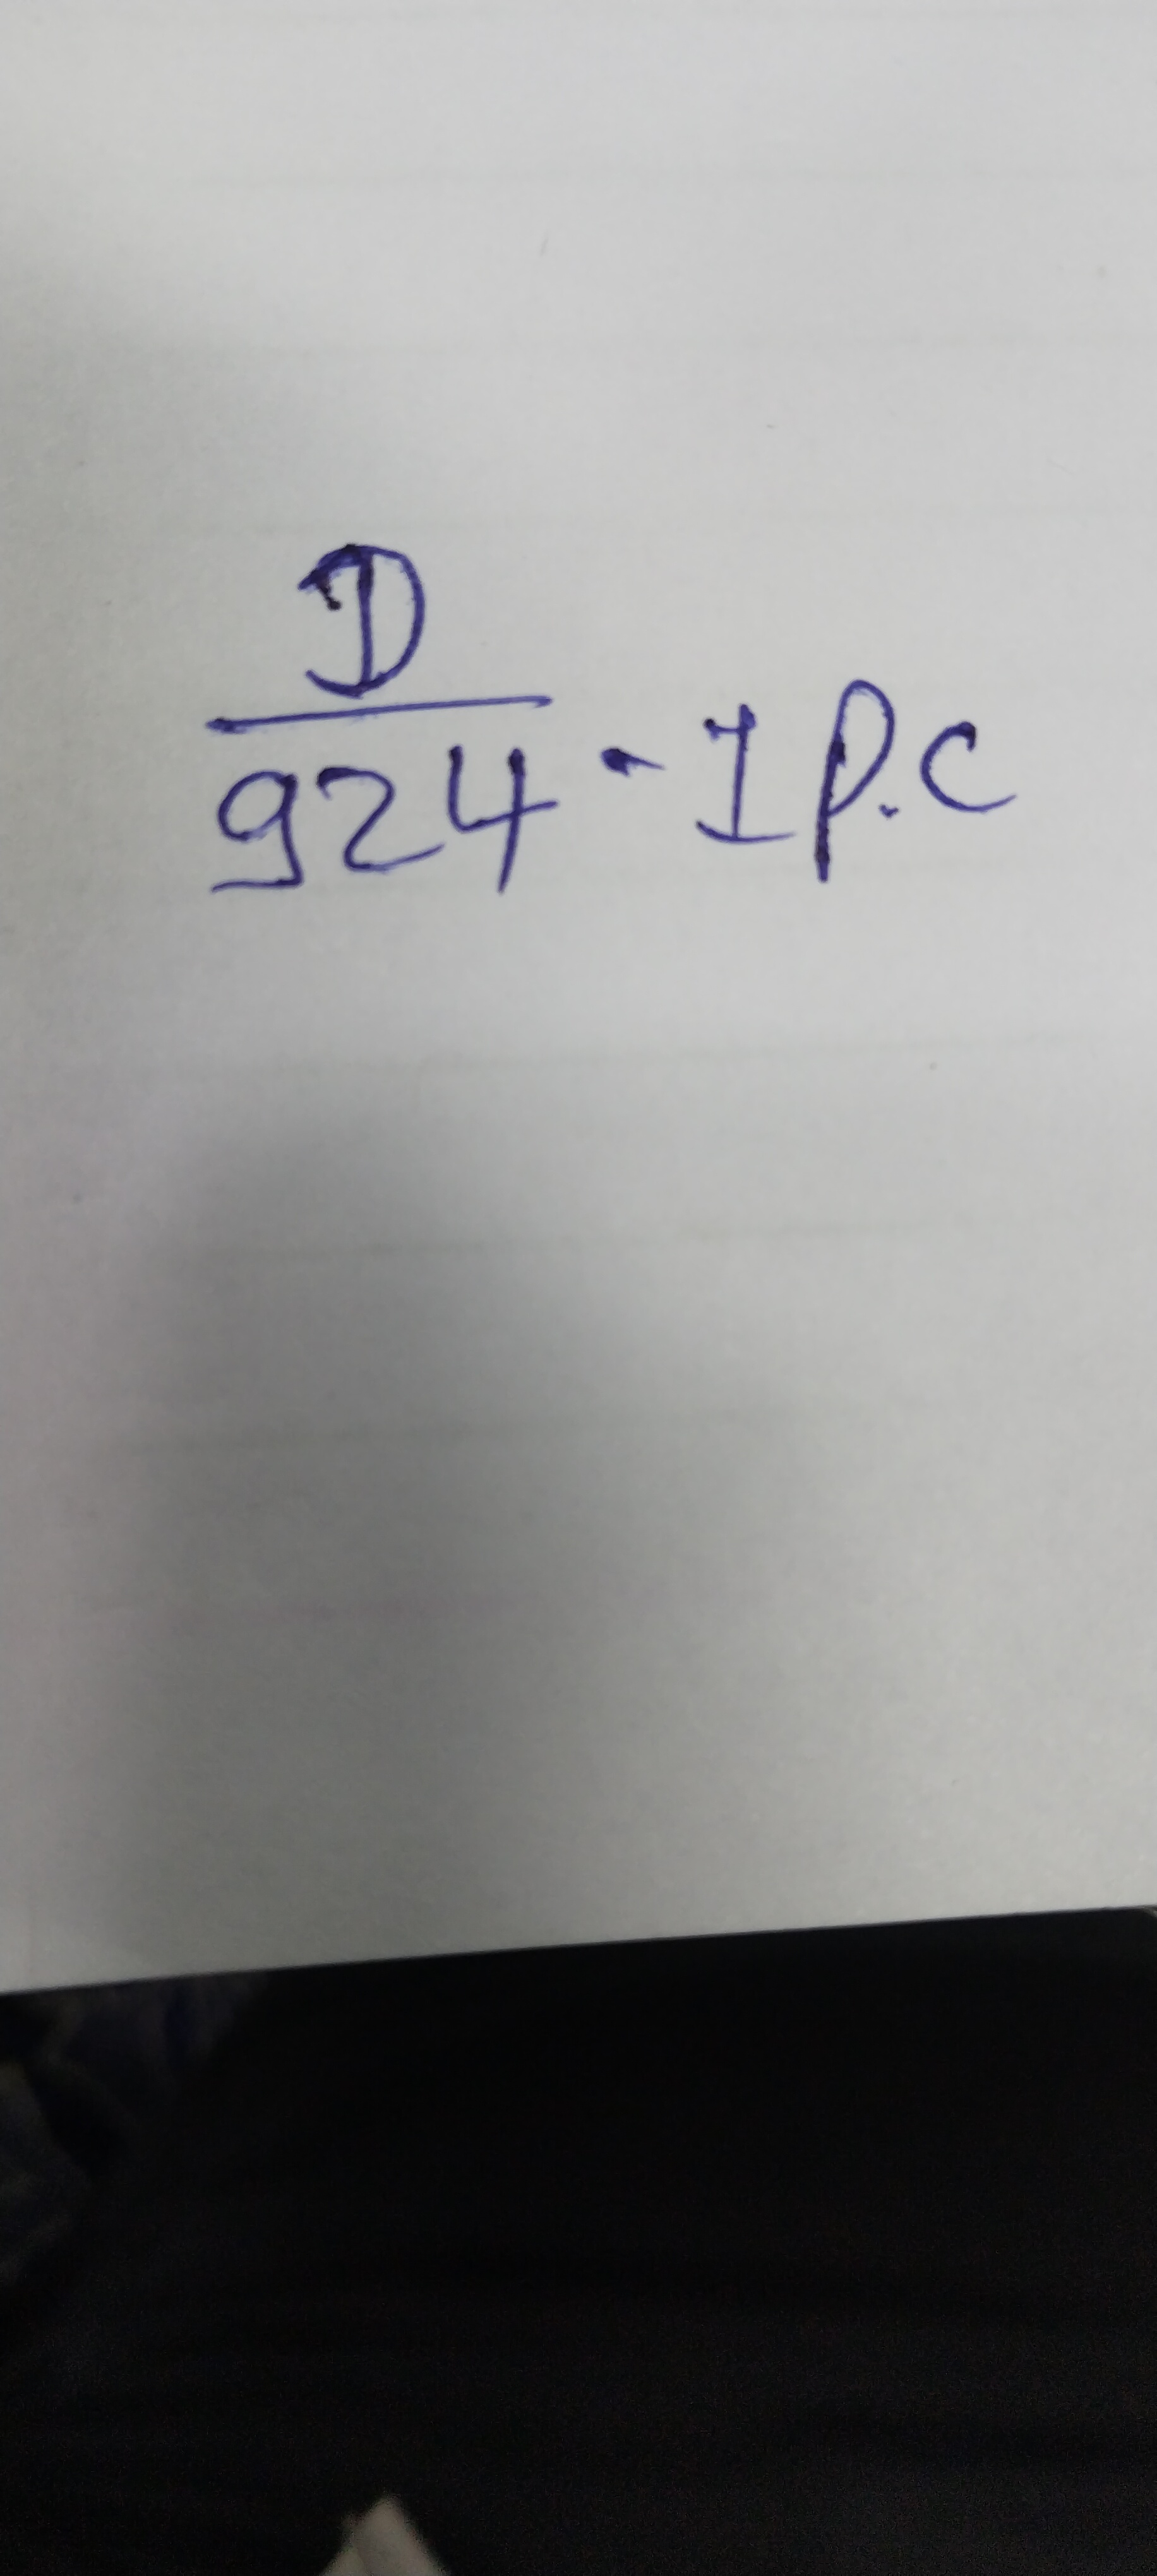 D
924 - 1 p.c